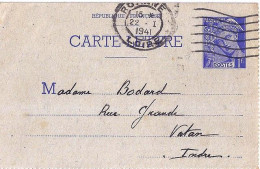 RÉPUBLIQUE FRANÇAISE
ROANNE
22 - I
1941
LOIRE
CARTE-LETTRE
POSTES
Madame Bodard
Rue Grande
Vatan
Indre